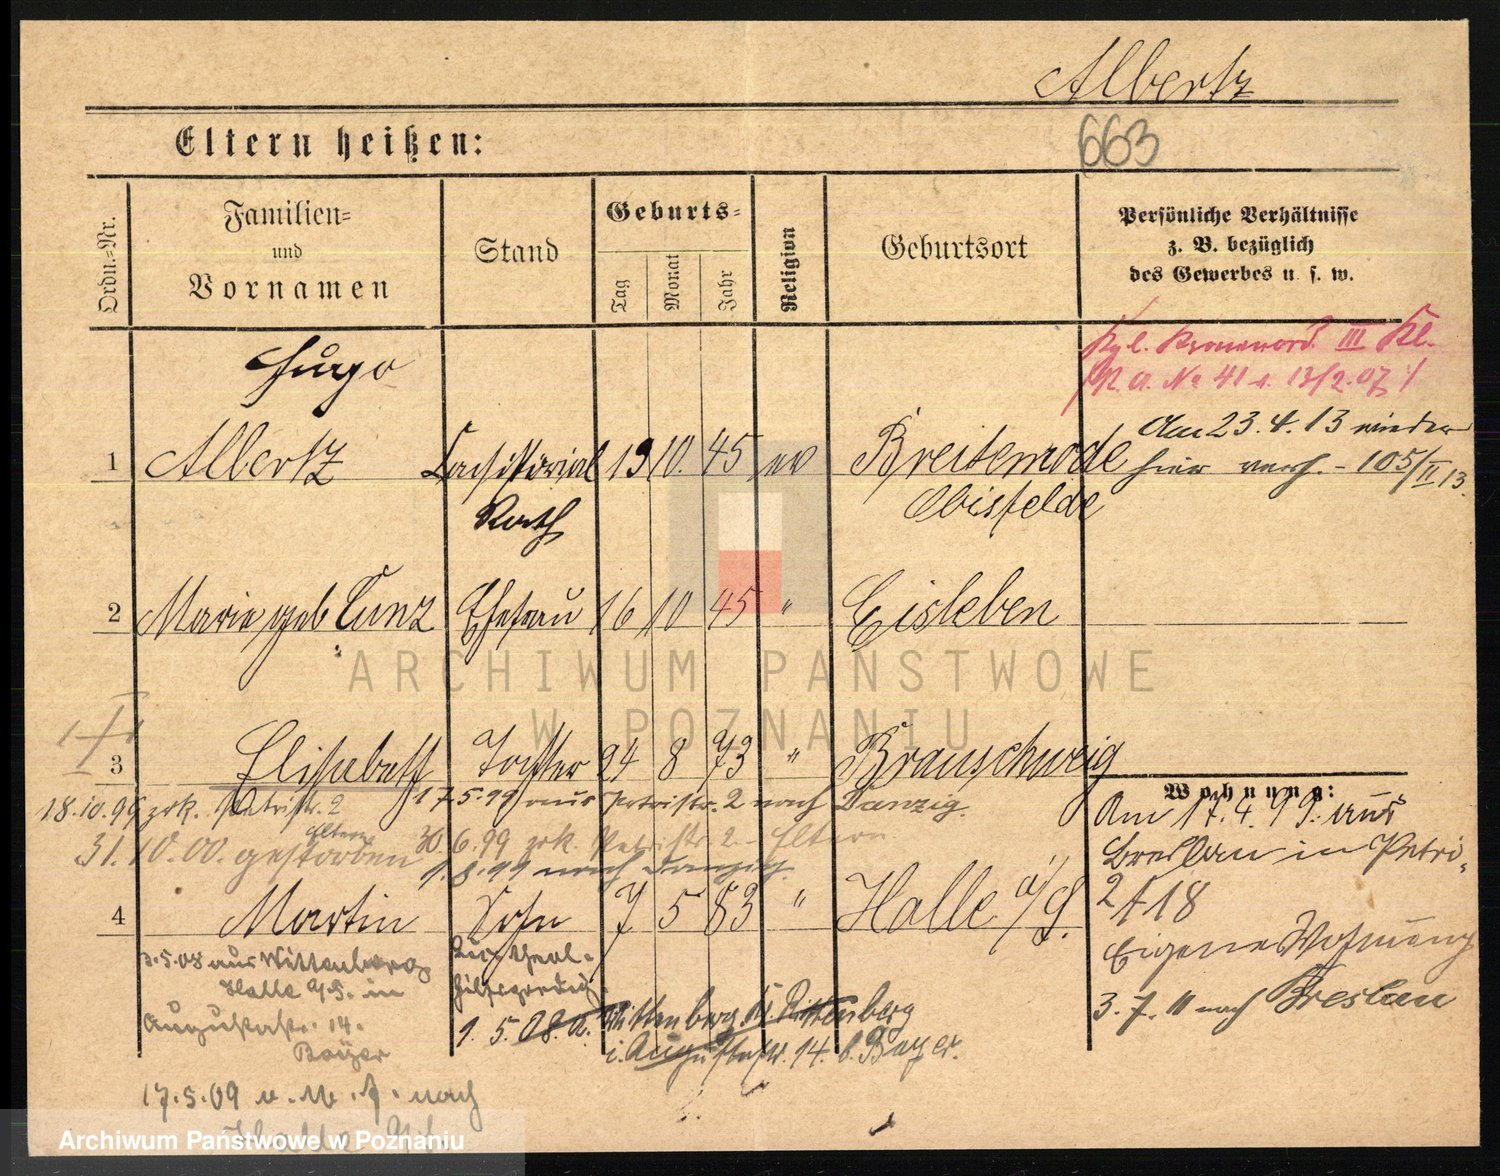 Albertz
Eltern heißen:
663
Ordn.-Nr.
Familien-
und
Vornamen
Stand
Geburts-
Tag
Monat
Jahr
Religion
Geburtsort
Persönliche Verhältnisse
z. B. bezüglich
des Gewerbes u. s. w.
Kgl. Kronenord. III Kl.
P. A. No 41 v. 13/2.07
Hugo
1 Albertz Consistorial 19 10. 45 ev Breitenrode
Rath
Obisfelde
Am 23.4.13 wieder
hier - 105/II 13.
2 Marie geb Cunz Ehefrau 16 10 45 " Eisleben
3 Elisabeth Tochter 24 8 73 " Braunschweig
18.10.99 zrk. Petristr. 2
17.5.99 aus Petristr. 2 nach Danzig.
Eltern
31.10.00. gestorben
30.6.99 zrk. Petristr 2. - Eltern
1.8.99 nach Danzig.
4 Martin Sohn 7 5 83 " Halle a/S.
5.08 aus Wittenberg
Halle a/S. in
Augustastr. 14.
Bayer
17.5.09 nach
Halle a/S.
1.5.08 a. Wittenberg Wittenberg
i. Augustastr. 14. b. Bayer.
Wohnung:
Am 17.4.99. aus
Breslau in Petri-
2 f 18
Eigene Wohnung
3.7.11 nach Breslau
ARCHIWUM PAŃSTWOWE
W POZNANIU
Archiwum Państwowe w Poznaniu